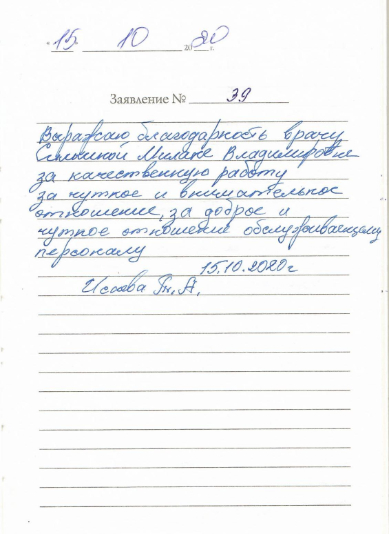 15. 10 2020 г.
Заявление № 39
Выражаю благодарность врачу
Милане Владимировне
за качественную работу
за чуткое и внимательное
отношение, за доброе и
чуткое отношение обслуживаещему
персоналу
15.10.2020г